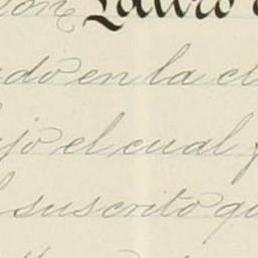 Lauro
do en la cl
jo el cual f
suscrito qu